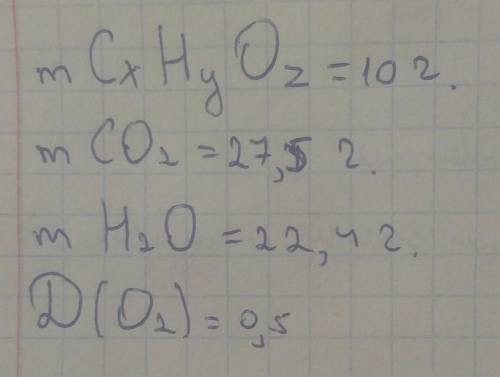 m CxHyOz = 10 г.
m CO2 = 27,5 г.
m H2O = 22,4 г.
D(O2) = 0,5